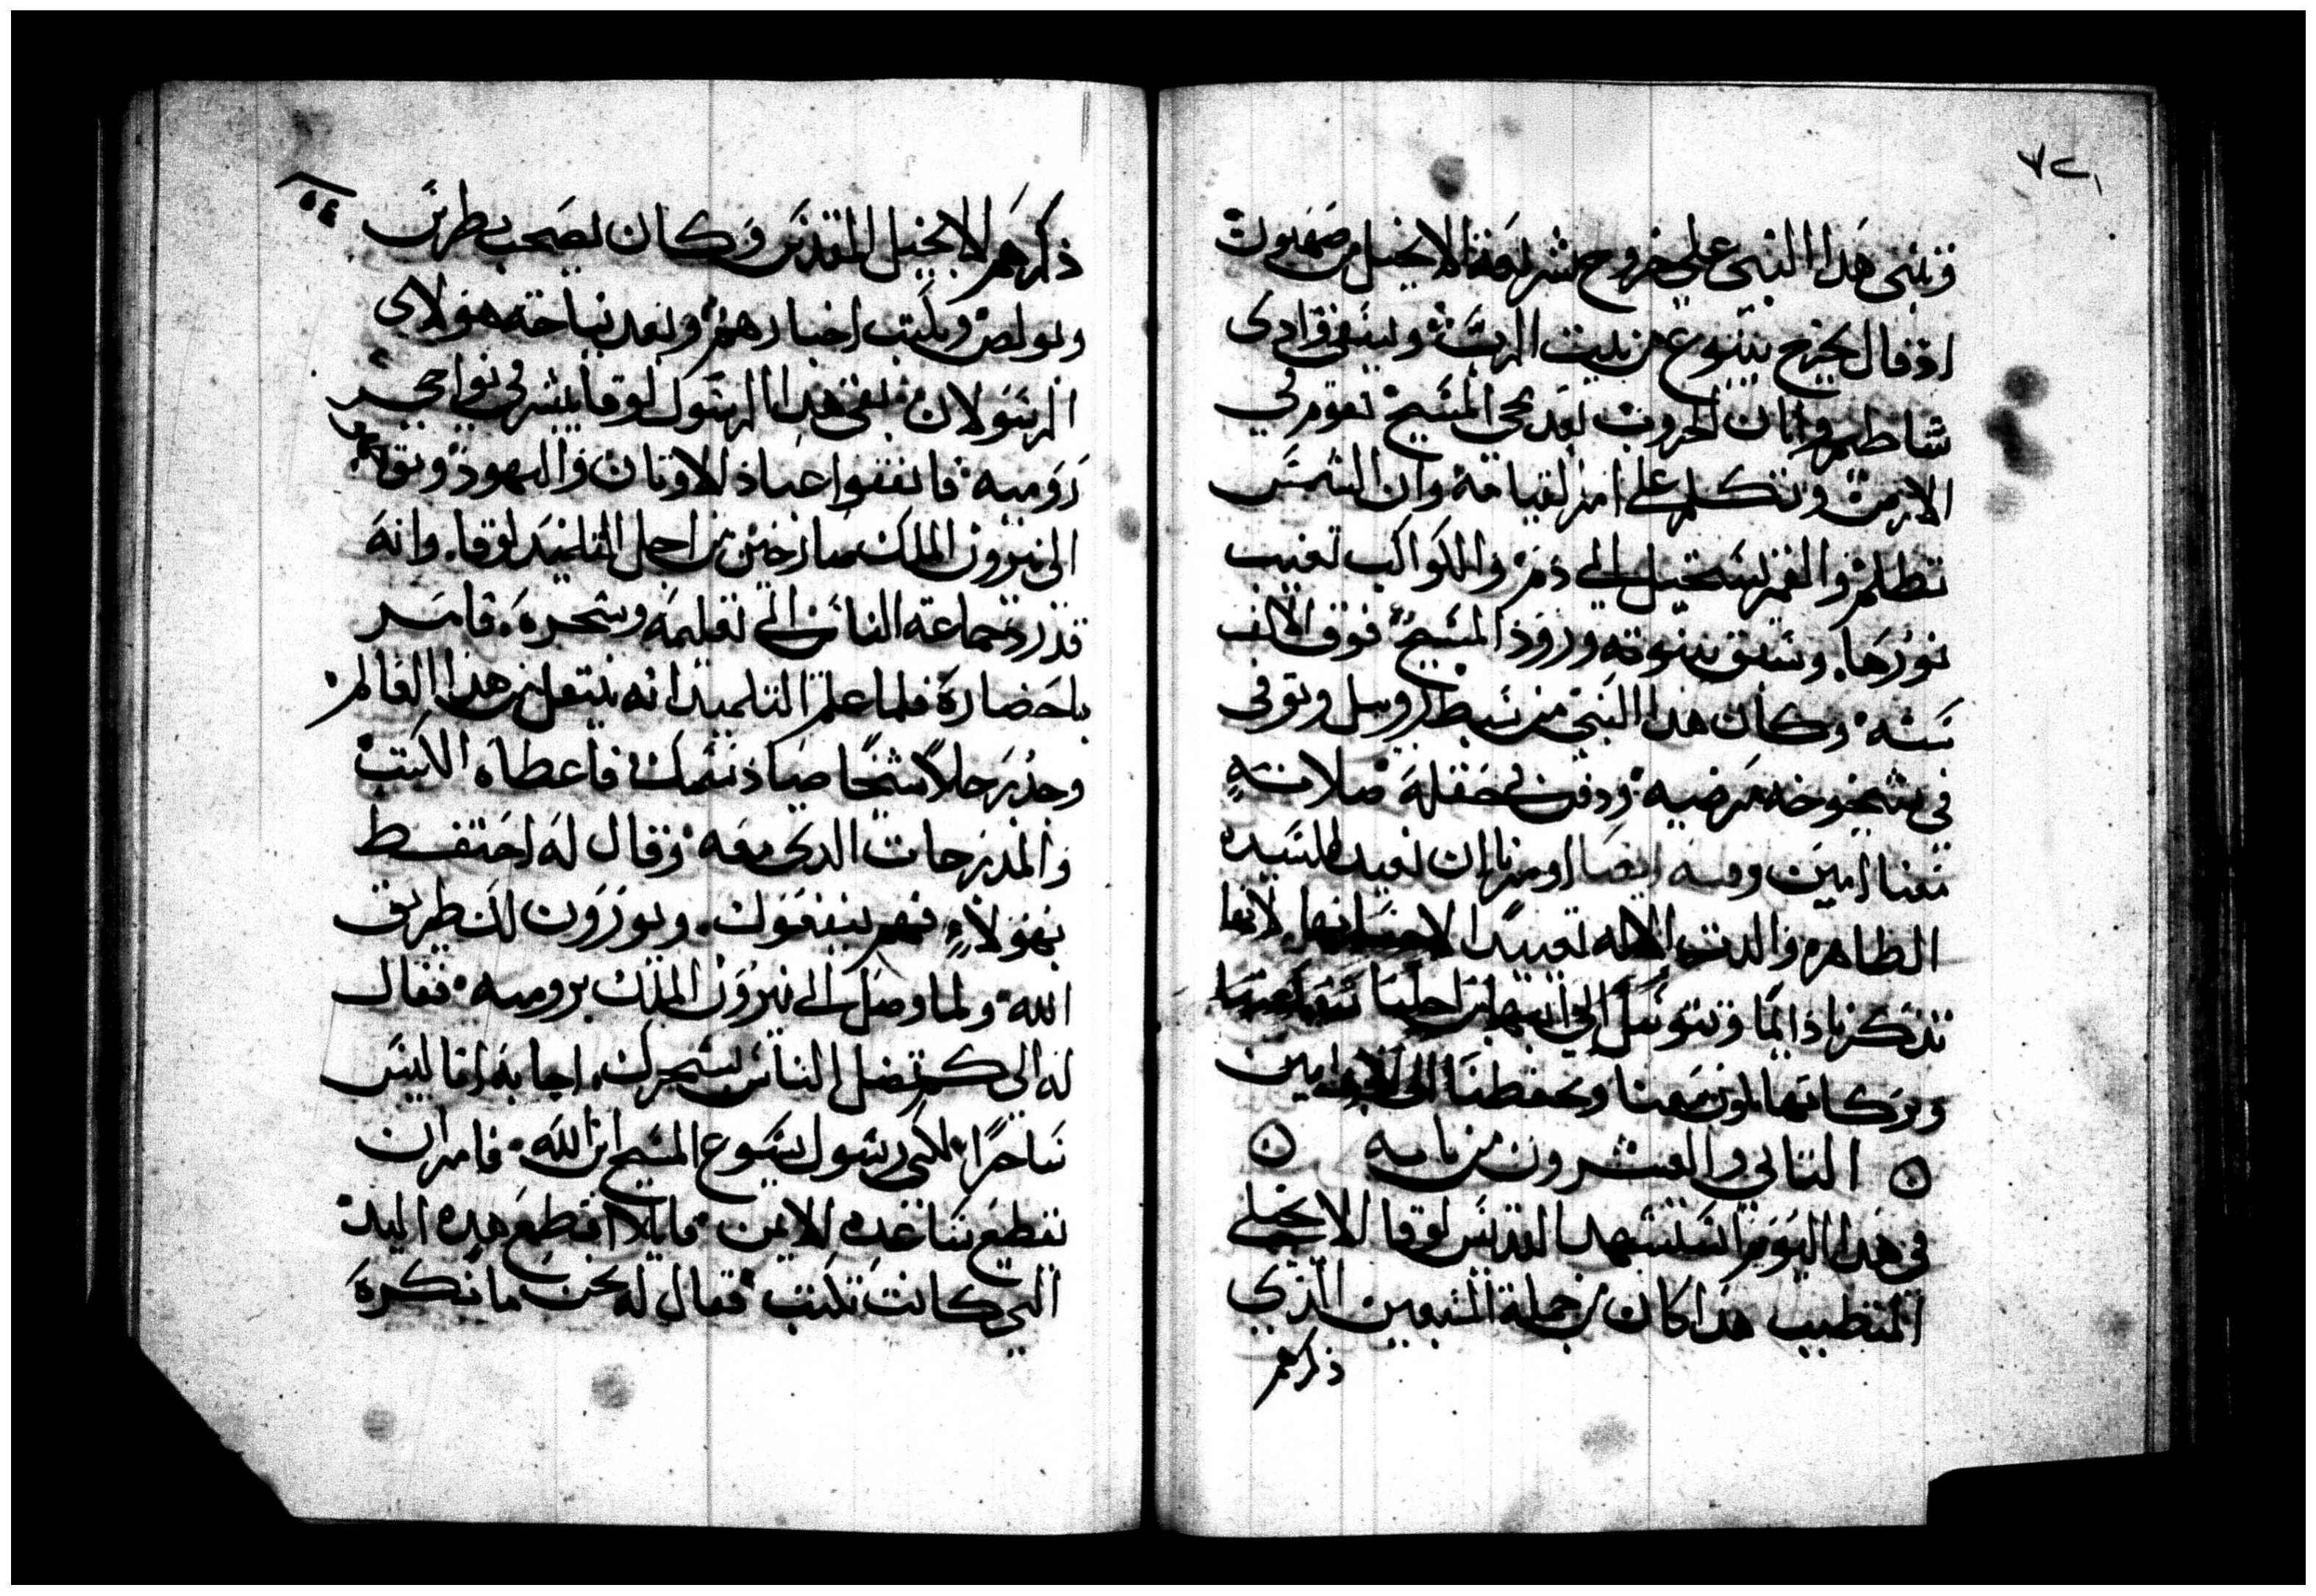 وتنبى هذا النبى على خروج شريعة الانجيل من صهيون
اذ قال يخرج ينبوع من بيت الرب ويسقى وادى
شاطيم وابان الحروب بعد مجى المسيح تقوم في
الارض وتكلم على امر القيامة وان الشمس
تظلم والقمر يستحيل الى دم والكواكب تغيب
نورها. وسبق بنبوته ورود المسيح فوق الالف
سنه وكان هدا النبى من سبط روبيل وتوفى
في شيخوخه مرضيه ودفن في حقله صلاته
معنا امين وفيه ايضا اومرنا ان نعيد للسيده
الطاهره والدت الاله تعييدا لاحسانها لانها
تدكرنا دايما وتتوسل الى ابنها من اجلنا شفاعتها
وبركاتها تكون معنا وتحفظنا الى الابد امين
التاني والعشرون من بابه
في هدا اليوم استشهد القديس لوقا الانجيلي
المتطبب هدا كان من جملة السبعين الدي
ذكرهم
٥٤
ذكرهم الانجيل المقدس وكان يصحب بطرس
وبولص ويكتب اخبارهم وبعد نياحة هولاى
الرسولان بقى هدا الرسول لوقا يبشر في نواحي
رومية فاتفقوا عباد الاوتان واليهود
الى نيرون الملك صارخين من اجل التلميد لوقا. وانه
قد رد جماعة الناس الى تعليمه وسحره. فامر
باحضاره فلما علم التلميد انه ينتقل من هدا العالم
وجد رجلا شيخا صياد سمك فاعطاه الكتب
والمدرجات الدى معه وقال له احتفظ
بهولاء فهم ينفعوك. ويورون لك طريق
الله ولما وصل الى نيرون الملك برومية فقال
له الى كم تضل الناس بسحرك. اجابه انا ليس
ساحرا لكنى رسول يسوع المسيح ابن الله فامر ان
تقطع ساعده الايمن قايلا اقطع هده اليد
التي كانت تكتب فقال له نحن ما نكره